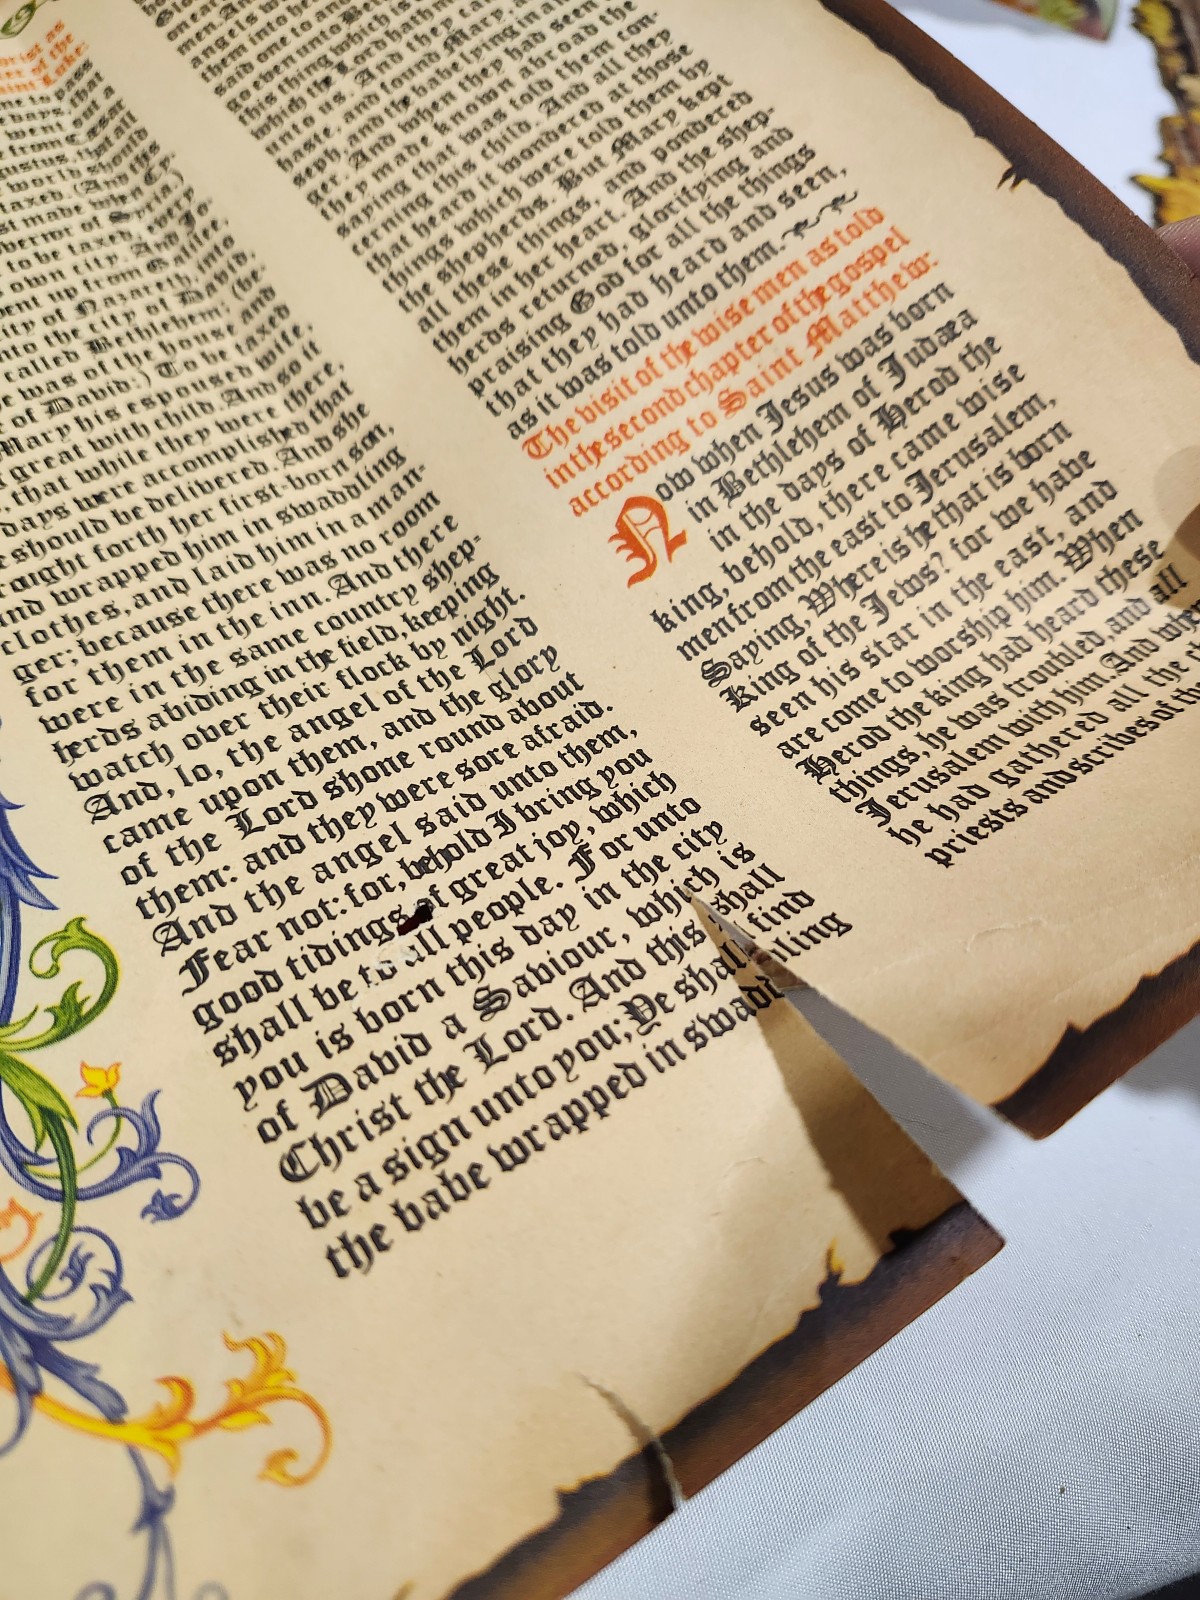 rist as
of the
Saint Luke:
me to pass
days, that
went out a
from Cæsar
ustus, that all
world should
taxed. (And this
st made when Cy-
vernor of Syria.)
to be taxed, every
own city. And Jo-
ent up from Galilee,
ity of Nazareth, into
nto the city of David,
called Bethlehem; (be-
e was of the house and
of David:) To be taxed
Mary his espoused wife,
great with child. And so it
, that while they were there,
days were accomplished that
e should be delivered. And she
rought forth her first-born son,
and wrapped him in swaddling
clothes, and laid him in a man-
ger; because there was no room
for them in the inn. And there
were in the same country shep-
herds abiding in the field, keeping
watch over their flock by night.
And, lo, the angel of the Lord
came upon them, and the glory
of the Lord shone round about
them: and they were sore afraid.
And the angel said unto them,
Fear not: for, behold I bring you
good tidings of great joy, which
shall be to all people. For unto
you is born this day in the city
of David a Saviour, which is
Christ the Lord. And this shall
be a sign unto you; Ye shall find
the babe wrapped in swaddling
men. And
angels were
them into heaven
said one to an
go even unto Beth
this thing which is
which the Lord hath m
unto us. And they cam
haste, and found Mary, an
seph, and the babe lying in a
ger. And when they had seen
they made known abroad the
saying that was told them con-
cerning this child. And all they
that heard it wondered at those
things which were told them by
the shepherds. But Mary kept
all these things, and pondered
them in her heart. And the shep-
herds returned, glorifying and
praising God for all the things
that they had heard and seen,
as it was told unto them.
The visit of the wise men as told
in the second chapter of the gospel
according to Saint Matthew:
Now when Jesus was born
in Bethlehem of Judæa
in the days of Herod the
king, behold, there came wise
men from the east to Jerusalem,
Saying, Where is he that is born
King of the Jews? for we have
seen his star in the east, and
are come to worship him. When
Herod the king had heard these
things, he was troubled, and all
Jerusalem with him. And when
he had gathered all the ch
priests and scribes of the